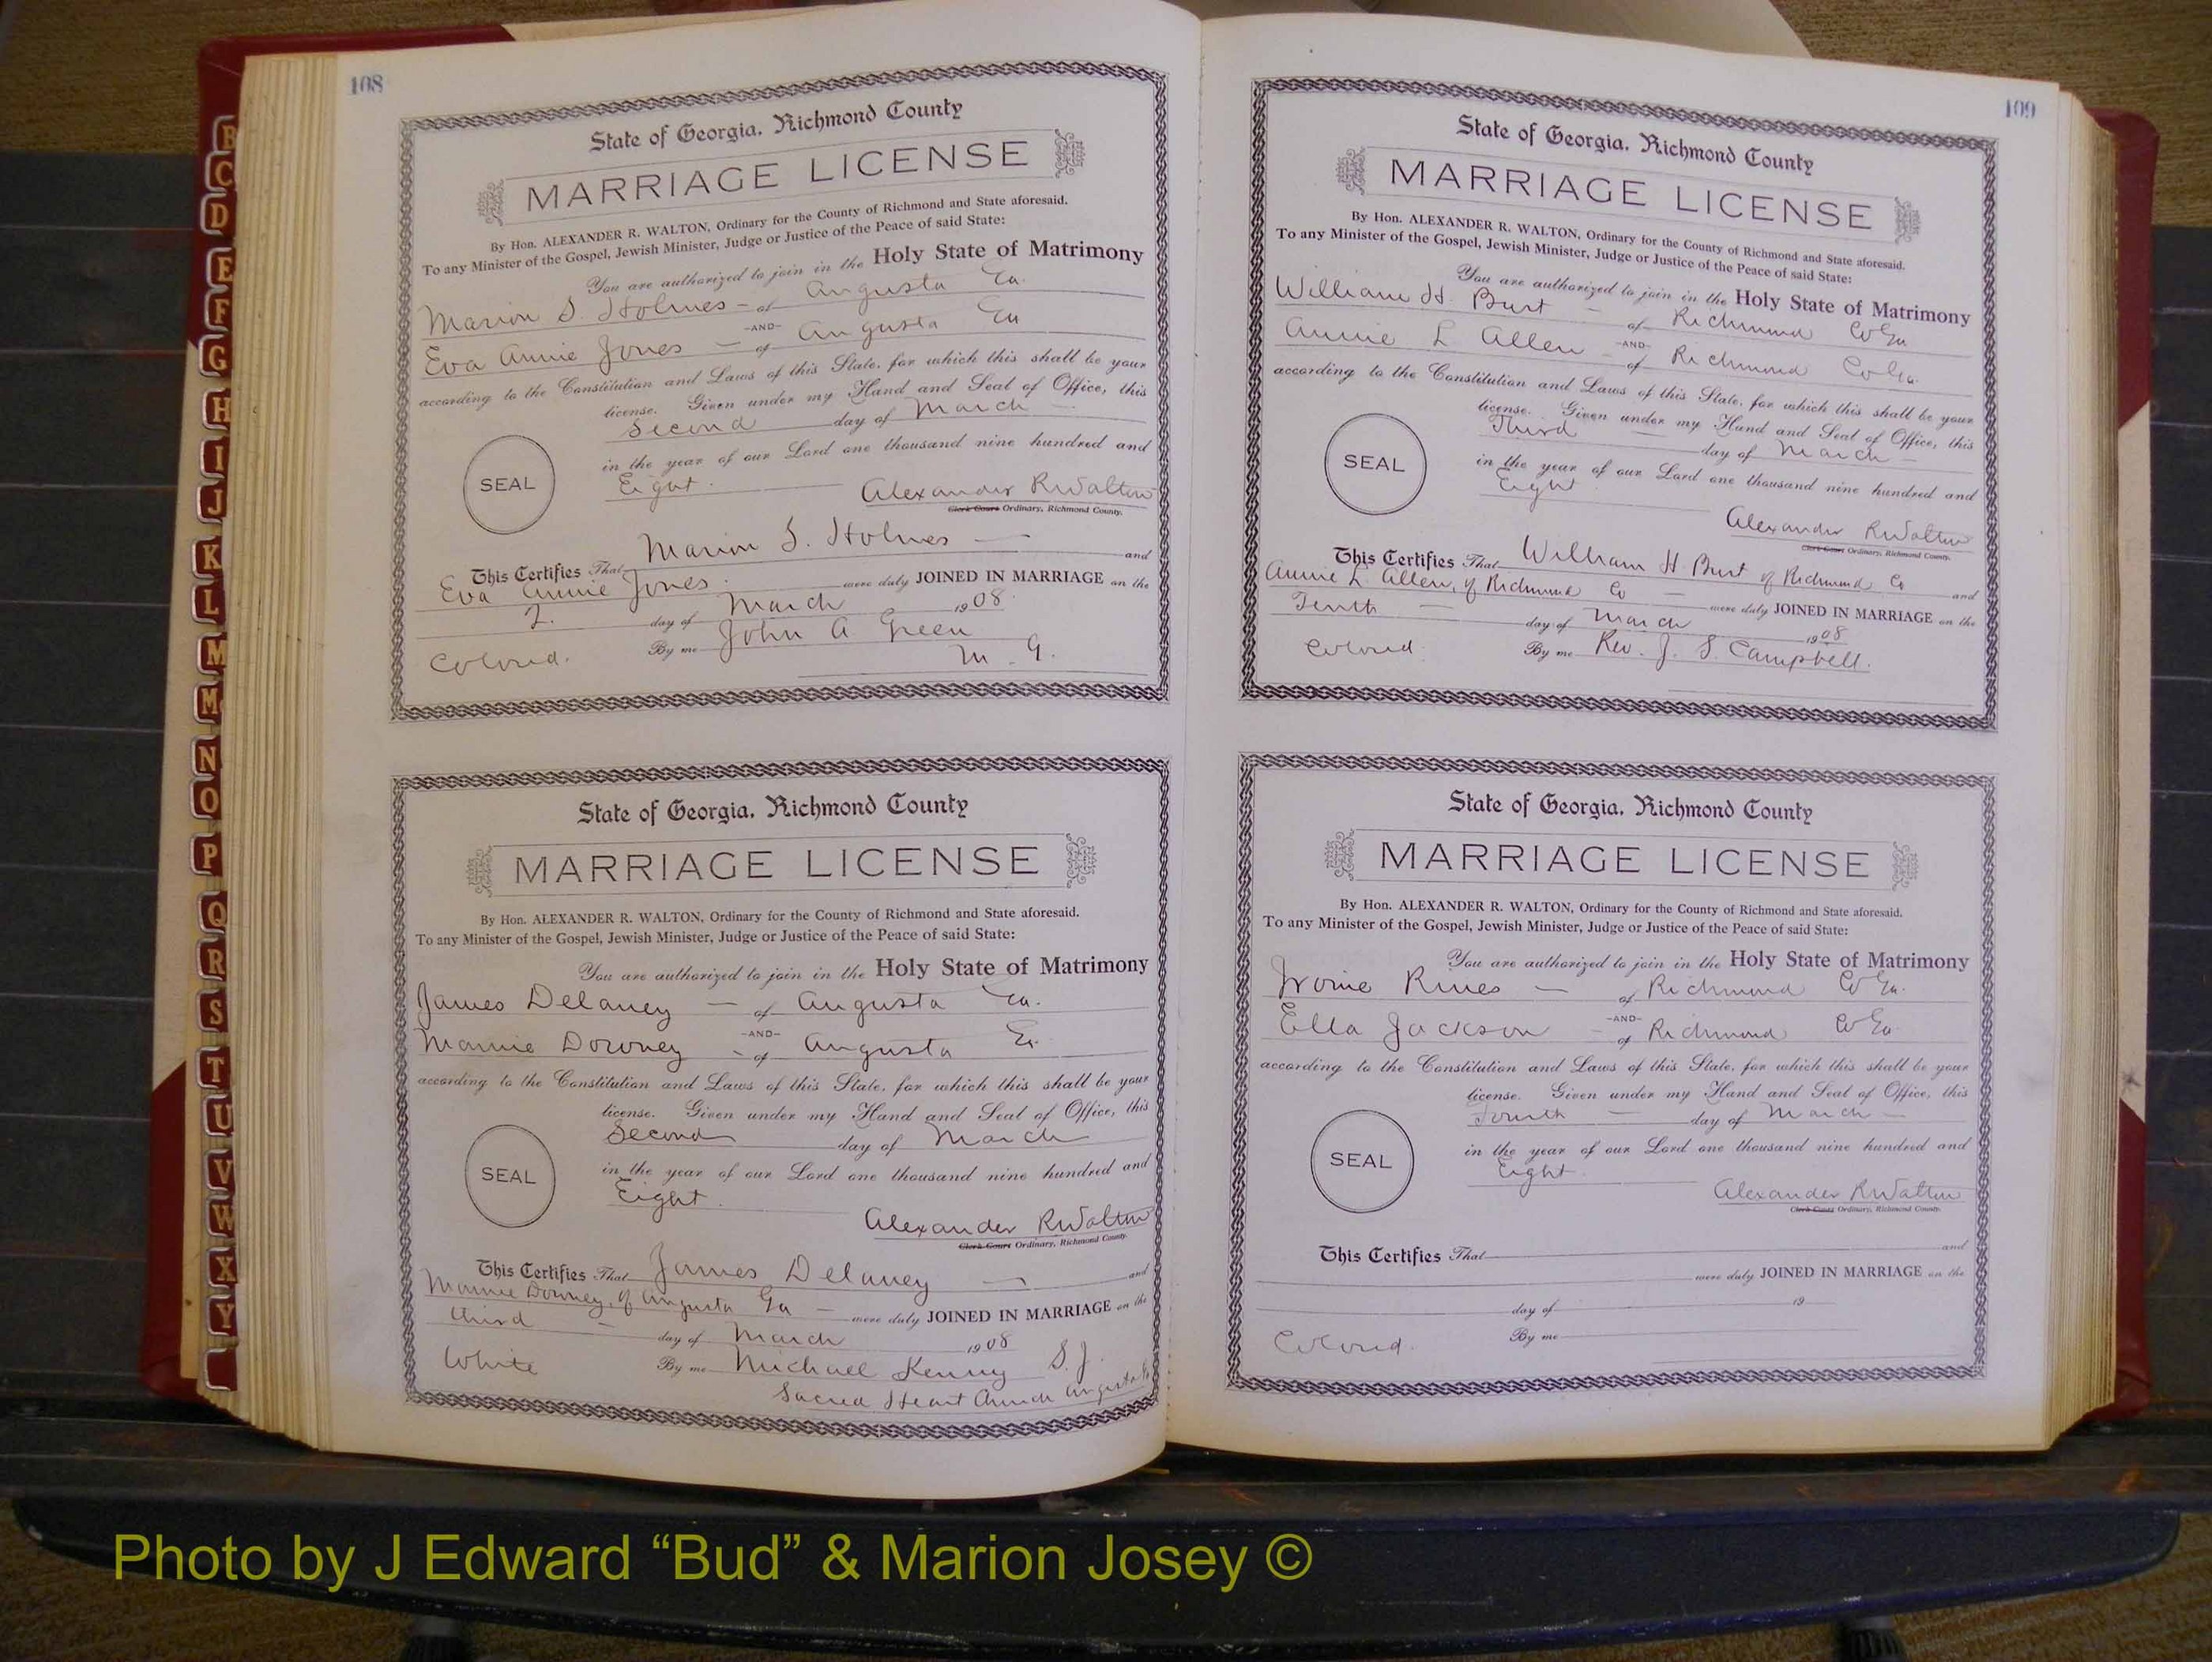 108
State of Georgia, Richmond County
MARRIAGE LICENSE
By Hon. ALEXANDER R. WALTON, Ordinary for the County of Richmond and State aforesaid.
To any Minister of the Gospel, Jewish Minister, Judge or Justice of the Peace of said State:
You are authorized to join in the Holy State of Matrimony
Marion S. Holmes - of Augusta Ga.
-AND-
Eva Annie Jones - of Augusta Ga
according to the Constitution and Laws of this State, for which this shall be your
license. Given under my Hand and Seal of Office, this
Second day of March
in the year of our Lord one thousand nine hundred and
SEAL
Eight.
Alexander R Walton
Clerk Court Ordinary, Richmond County.
This Certifies That Marion S. Holmes - and
Eva Annie Jones. were duly JOINED IN MARRIAGE on the
2. day of March 1908
Colored. By me John A Green
M. G.
State of Georgia, Richmond County
MARRIAGE LICENSE
By Hon. ALEXANDER R. WALTON, Ordinary for the County of Richmond and State aforesaid.
To any Minister of the Gospel, Jewish Minister, Judge or Justice of the Peace of said State:
You are authorized to join in the Holy State of Matrimony
James Delaney - of Augusta Ga.
-AND-
Mamie Downey - of Augusta Ga.
according to the Constitution and Laws of this State, for which this shall be your
license. Given under my Hand and Seal of Office, this
Second day of March
in the year of our Lord one thousand nine hundred and
SEAL
Eight.
Alexander R Walton
Clerk Court Ordinary, Richmond County.
This Certifies That James Delaney - and
Mamie Downey, of Augusta Ga - were duly JOINED IN MARRIAGE on the
third - day of March 1908
White By me Michael Kenny S.J.
Sacred Heart Church Augusta Ga
109
State of Georgia, Richmond County
MARRIAGE LICENSE
By Hon. ALEXANDER R. WALTON, Ordinary for the County of Richmond and State aforesaid.
To any Minister of the Gospel, Jewish Minister, Judge or Justice of the Peace of said State:
You are authorized to join in the Holy State of Matrimony
William H. Burt - of Richmond Co Ga
-AND-
Annie L Allen - of Richmond Co Ga.
according to the Constitution and Laws of this State, for which this shall be your
license. Given under my Hand and Seal of Office, this
Third day of March -
in the year of our Lord one thousand nine hundred and
SEAL
Eight
Alexander R Walton
Clerk Court Ordinary, Richmond County.
This Certifies That William H. Burt of Richmond Co and
Annie L. Allen, of Richmond Co - were duly JOINED IN MARRIAGE on the
Tenth - day of March 1908
Colored By me Rev. J. S. Campbell.
State of Georgia, Richmond County
MARRIAGE LICENSE
By Hon. ALEXANDER R. WALTON, Ordinary for the County of Richmond and State aforesaid.
To any Minister of the Gospel, Jewish Minister, Judge or Justice of the Peace of said State:
You are authorized to join in the Holy State of Matrimony
- of Richmond Co Ga.
-AND-
Ella Jackson - of Richmond Co Ga
according to the Constitution and Laws of this State, for which this shall be your
license. Given under my Hand and Seal of Office, this
Fourth - day of March -
in the year of our Lord one thousand nine hundred and
SEAL
Eight
Alexander R Walton
Clerk Court Ordinary, Richmond County.
This Certifies That and
were duly JOINED IN MARRIAGE on the
day of 19
Colored. By me
B
C
D
E
F
G
H
I
J
K
L
M
Mc
N
O
P
Q
R
S
T
U
V
W
X
Y
Photo by J Edward “Bud” & Marion Josey ©